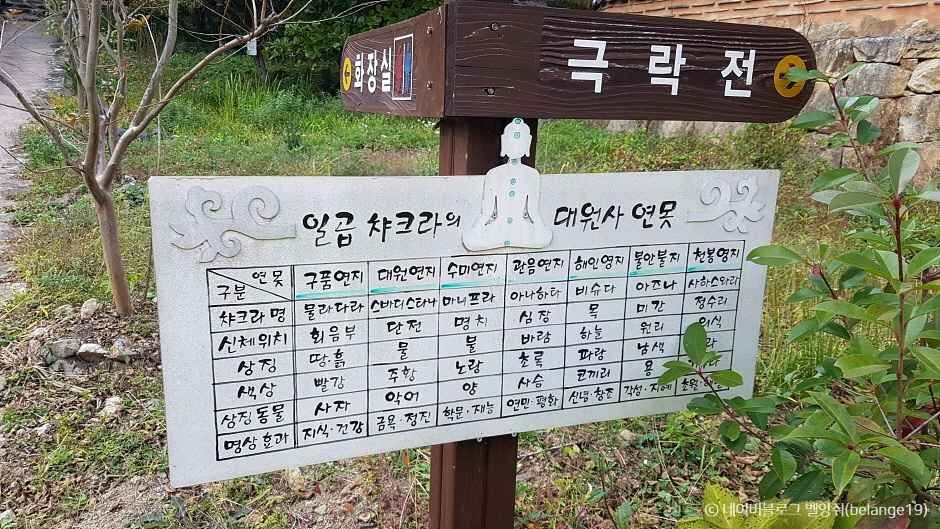 화장실
극락전
일곱 챠크라의 대원사 연못
구분 연못 구품연지 대원연지 수미연지 관음연지 해인영지 불안불지 천봉영지
챠크라 명 물라다라 스바디스타나 마니프라 아나하타 비슈다 아즈나 사하스와라
신체위치 회음부 단전 명치 심장 목 미간 정수리
상징 땅·흙 물 불 바람 하늘 원리 의식
색상 빨강 주황 노랑 초록 파랑 남색
상징동물 사자 악어 양 사슴 코끼리 용
명상효과 지식·건강 금욕·정진 학문·재능 연민·평화 신념·창조 각성·지혜
© 네이버블로그 벨앙쥐(belange19)